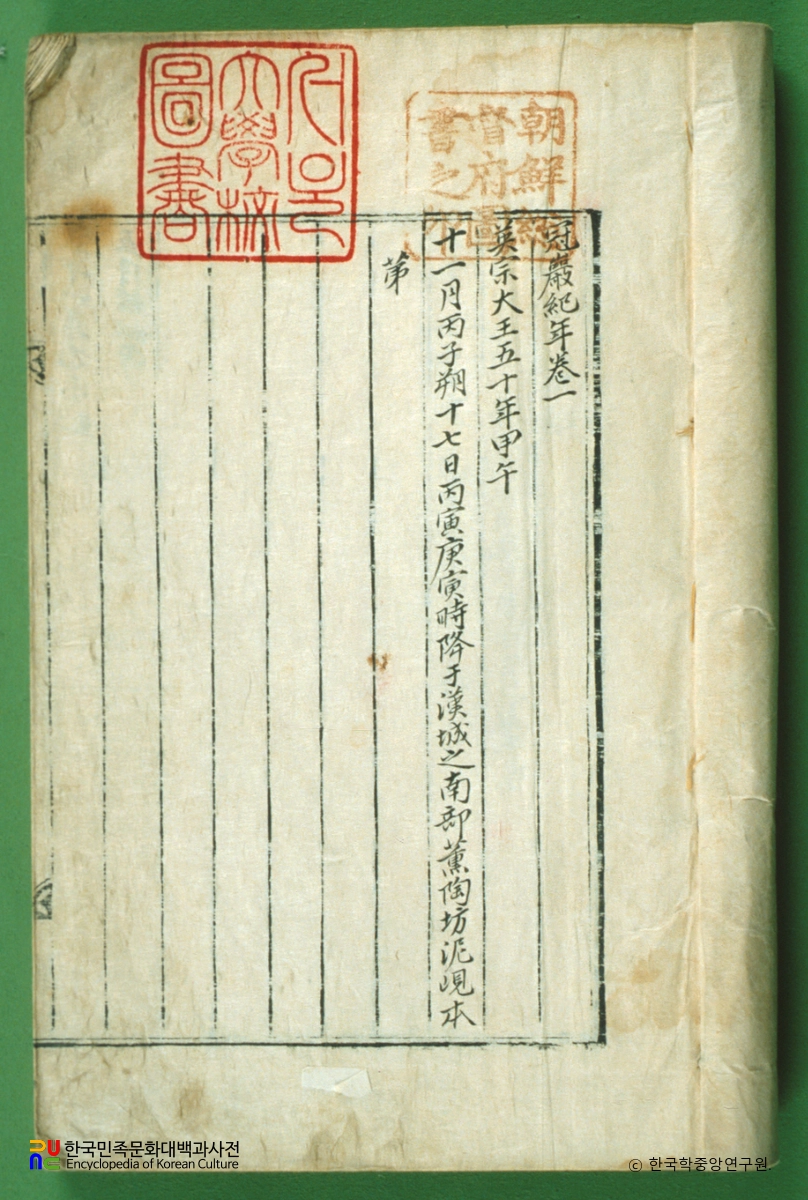 冠巖紀年卷一
英宗大王五十年甲午
十一月丙子朔十七日丙寅庚寅時降于漢城之南部薰陶坊泥峴本
第
朝鮮總
督府圖
書之印
서울
大學校
圖書
한국민족문화대백과사전
Encyclopedia of Korean Culture
ⓒ 한국학중앙연구원